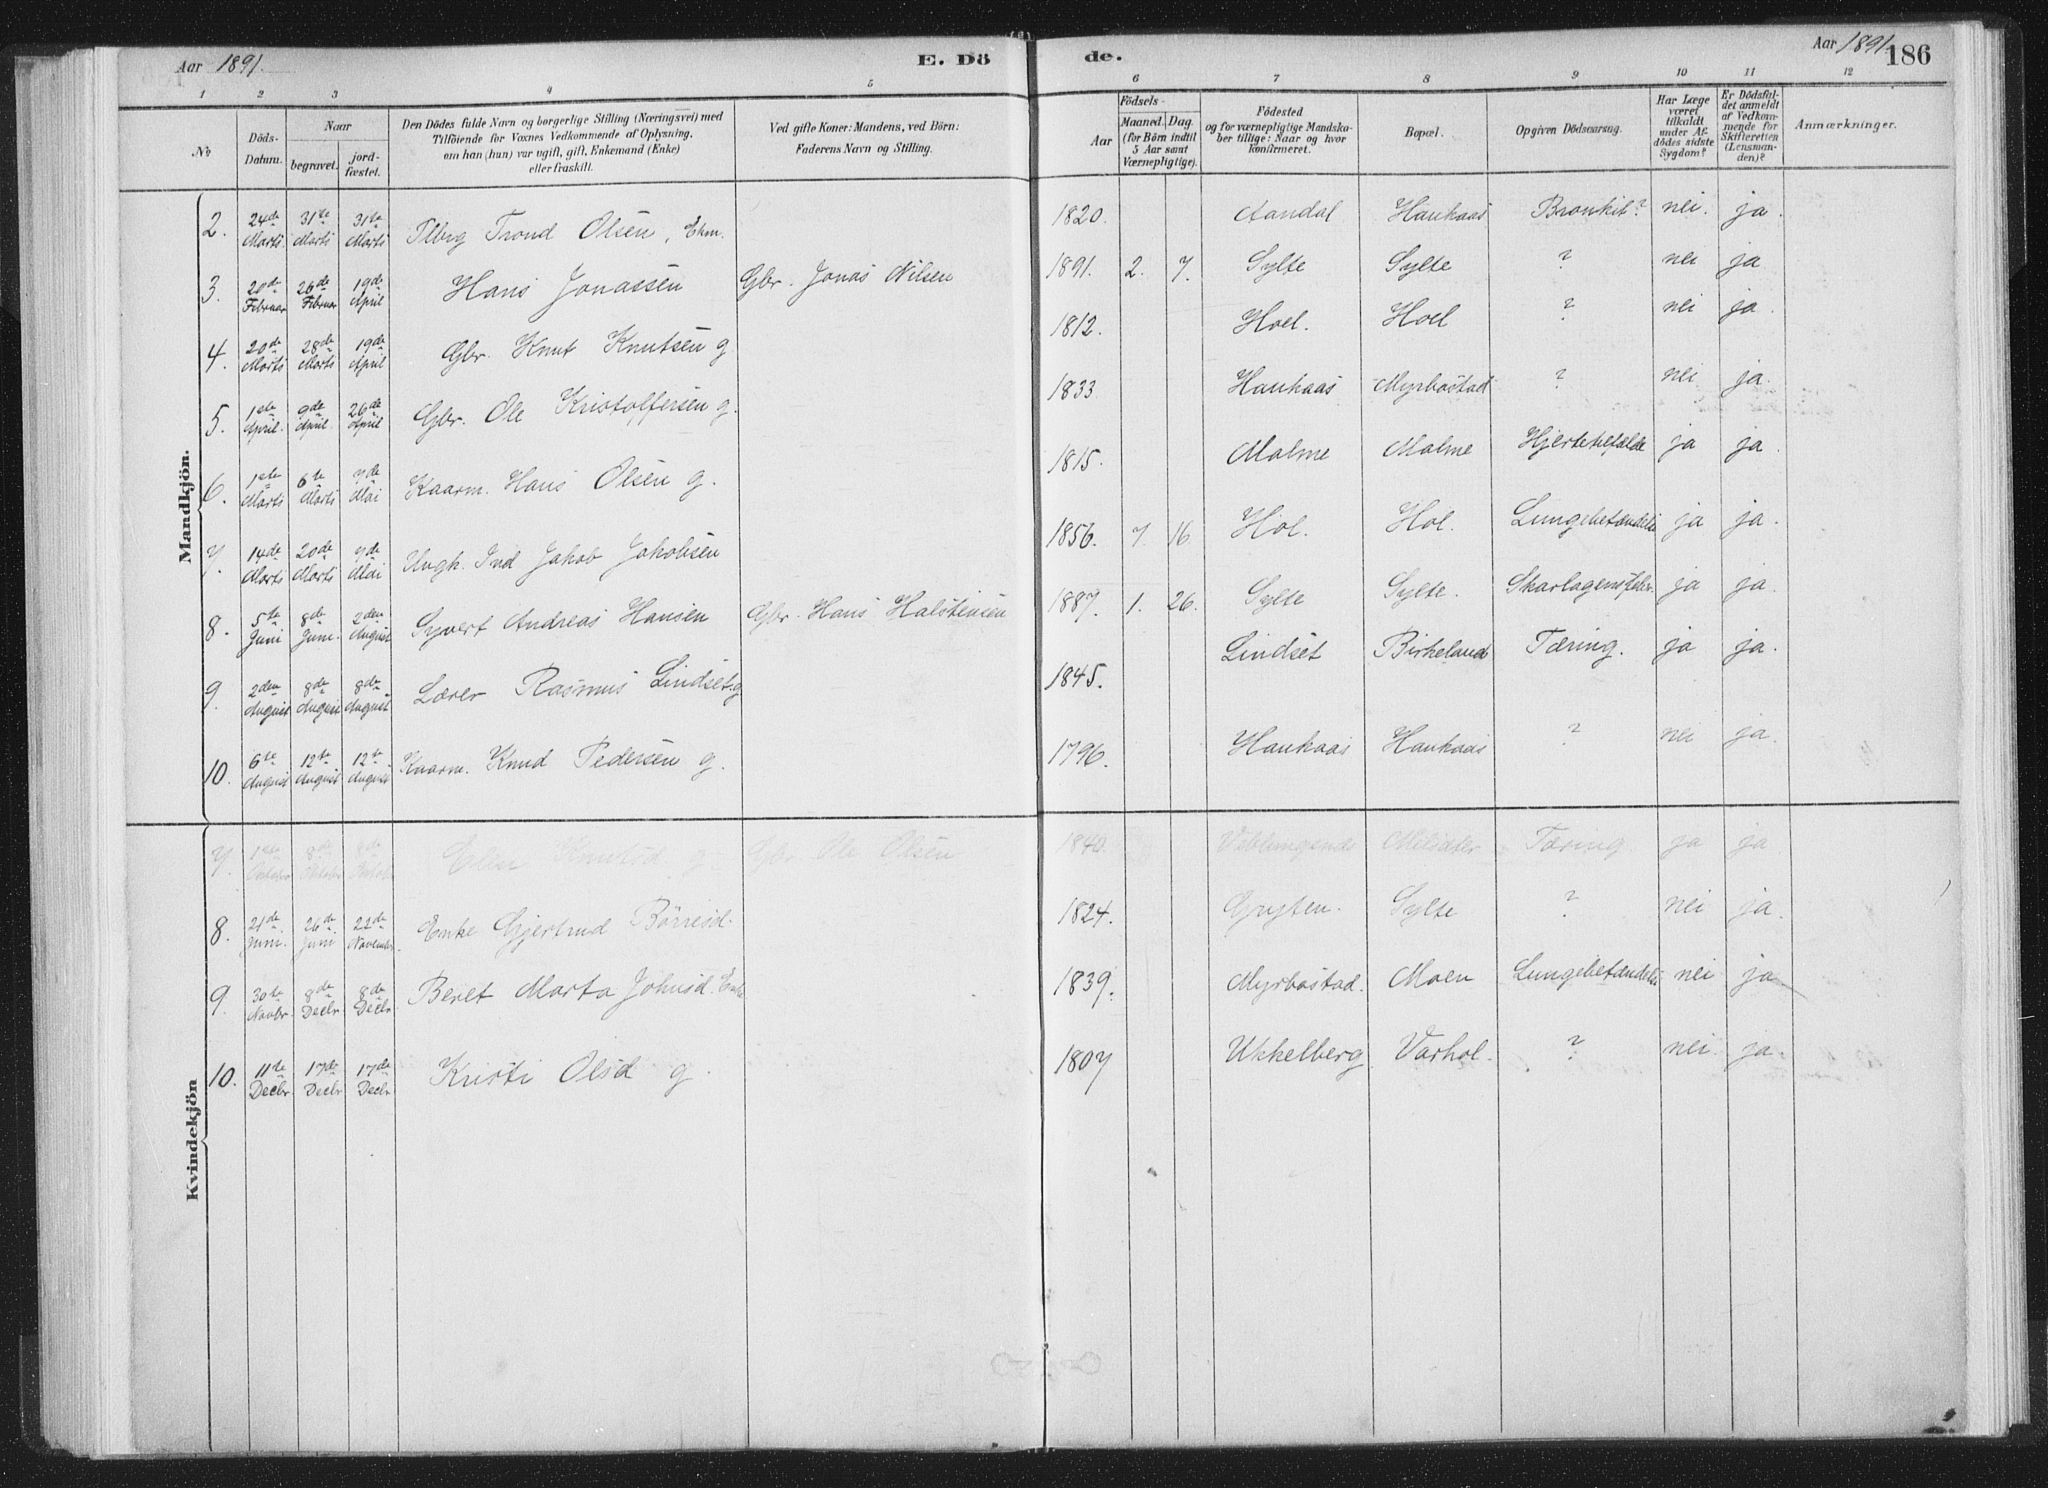 Aar 1891.
E. Dö
de.
Aar 1891.
186
1 2 3 4 5 6 7 8 9 10 11 12
No
Döds-Datum.
Naar
begravet.
jord-fæstet.
Den Dödes fulde Navn og borgerlige Stilling (Næringsvei) med
Tilföiende for Voxnes Vedkommende af Oplysning,
om han (hun) var ugift, gift, Enkemand (Enke)
eller fraskilt.
Ved gifte Koner: Mandens, ved Börn:
Faderens Navn og Stilling.
Födsels-
Aar
Maaned. Dag.
(for Börn indtil
5 Aar samt
Værnepligtige).
Födested
og for værnepligtige Mandska-
ber tillige: Naar og hvor
konfirmeret.
Bopæl.
Opgiven Dödsaarsag.
Har Læge
været
tilkaldt
under Af-
dödes sidste
Sygdom?
Er Dödsfal-
det anmeldt
af Vedkom-
mende for
Skifteretten
(Lensman-
den)?
Anmærkninger.
Mandkjön.
2. 24de Marts 31te Marts 31te Marts Flbrg Trond Olsen, Ekm. 1820. Aandal Haukaas Bronkit? nei. ja.
3. 20de Februar 26de Februar 19de April Hans Jonassen Gbr. Jonas Nilsen 1891. 2. 7. Sylte Sylte ? nei ja
4. 20de Marts 28de Marts 19de April Gbr. Knut Knutsen g 1812. Hoel. Hoel ? nei ja.
5. 1ste April. 9de April. 26de April Gbr. Ole Kristoffersen g. 1833 Haukaas Myrbostad ? nei ja.
6. 1ste Marts 6te Marts 7de Mai Kaarm. Hans Olsen g. 1815. Malme Malme Hjertetilfælde ja ja.
7. 14de Marts 20de Marts 7de Mai Ungk. Ind Jakob Jakobsen 1856. 7. 16. Hol. Hol. Lungebetændelse ja ja.
8. 5te Juni 8de Juni. 2den August Syvert Andreas Hansen Gbr. Hans Halstensen 1887. 1. 26. Sylte Sylte. Skarlagensfeber ja ja.
9. 2den August 8de August 8de August Lærer Rasmus Lindset. g 1845. Lindset Birkeland Tæring. ja ja.
10. 6te August 12te August 12te August Kaarm. Knud Pedersen g. 1796. Haukaas Haukaas ? nei ja.
Kvindekjön
7. 1ste Oktober 8de Oktober 8de Oktober Elen Knutsd g Gbr Ole Olsen 1840. Veblungsnes Tæring ja ja
8. 21de Juni. 26de Juni 22de November. Enke Gjertrud Börresd. 1824. Gryten. Sylte ? nei ja.
9. 30te Novbr. 8de Decbr 8de Decbr. Beret Marta Johnsd. Enke 1839. Myrbostad. Moen Lungebetændelse nei ja
10. 11te Decbr 17de Decbr 17de Decbr Kristi Olsd g. 1807 Ukkelberg Varhol. ? nei. ja.